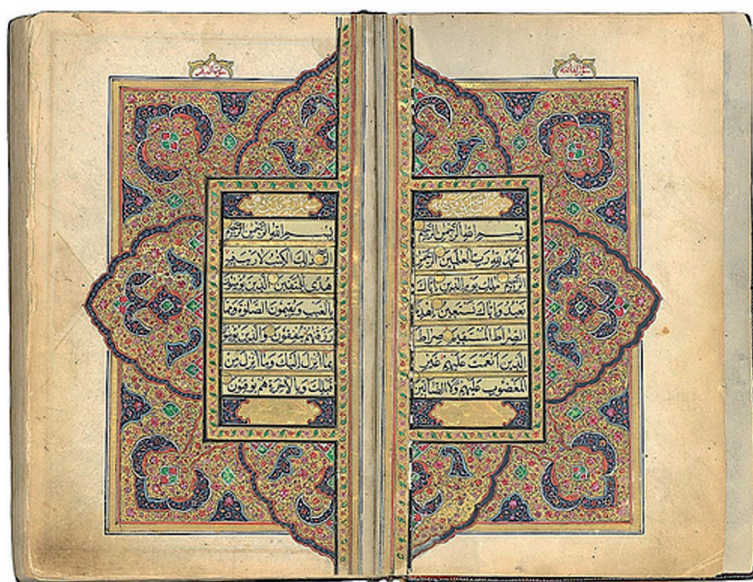 سورة الفاتحة
بسم الله الرحمن الرحيم
الحمد لله رب العالمين الرحمن
الرحيم ملك يوم الدين اياك
نعبد واياك نستعين اهدنا
الصراط المستقيم صراط
الذين انعمت عليهم غير
المغضوب عليهم ولا الضالين
بسم الله الرحمن الرحيم
الم ذلك الكتب لا ريب فيه
هدى للمتقين الذين يؤمنون
بالغيب ويقيمون الصلوة ومما
رزقناهم ينفقون والذين يؤمنون
بما انزل اليك وما انزل من
قبلك وبالاخرة هم يوقنون